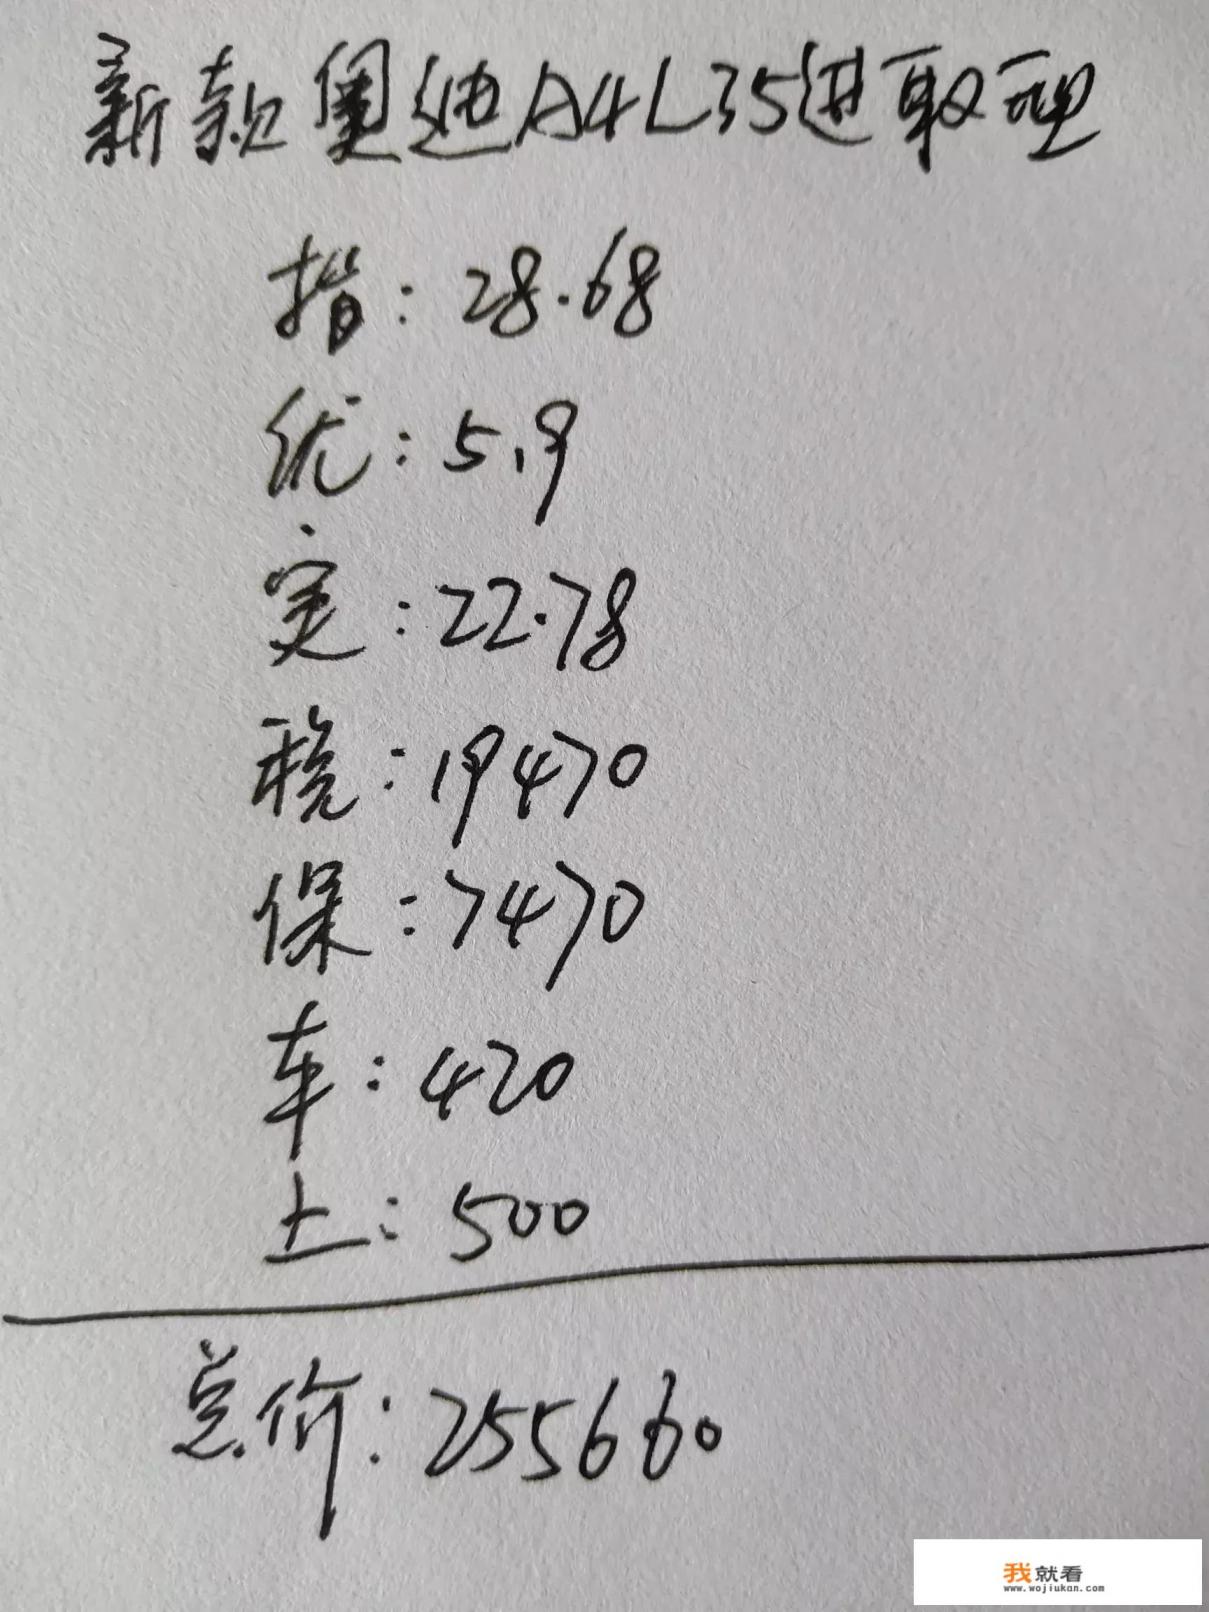 新款奥迪A4L35进取型
指：28.68
优：5.9
实：22.78
税：19470
保：7470
车：420
上：500
总价：255660
我就看
www.wojiukan.com